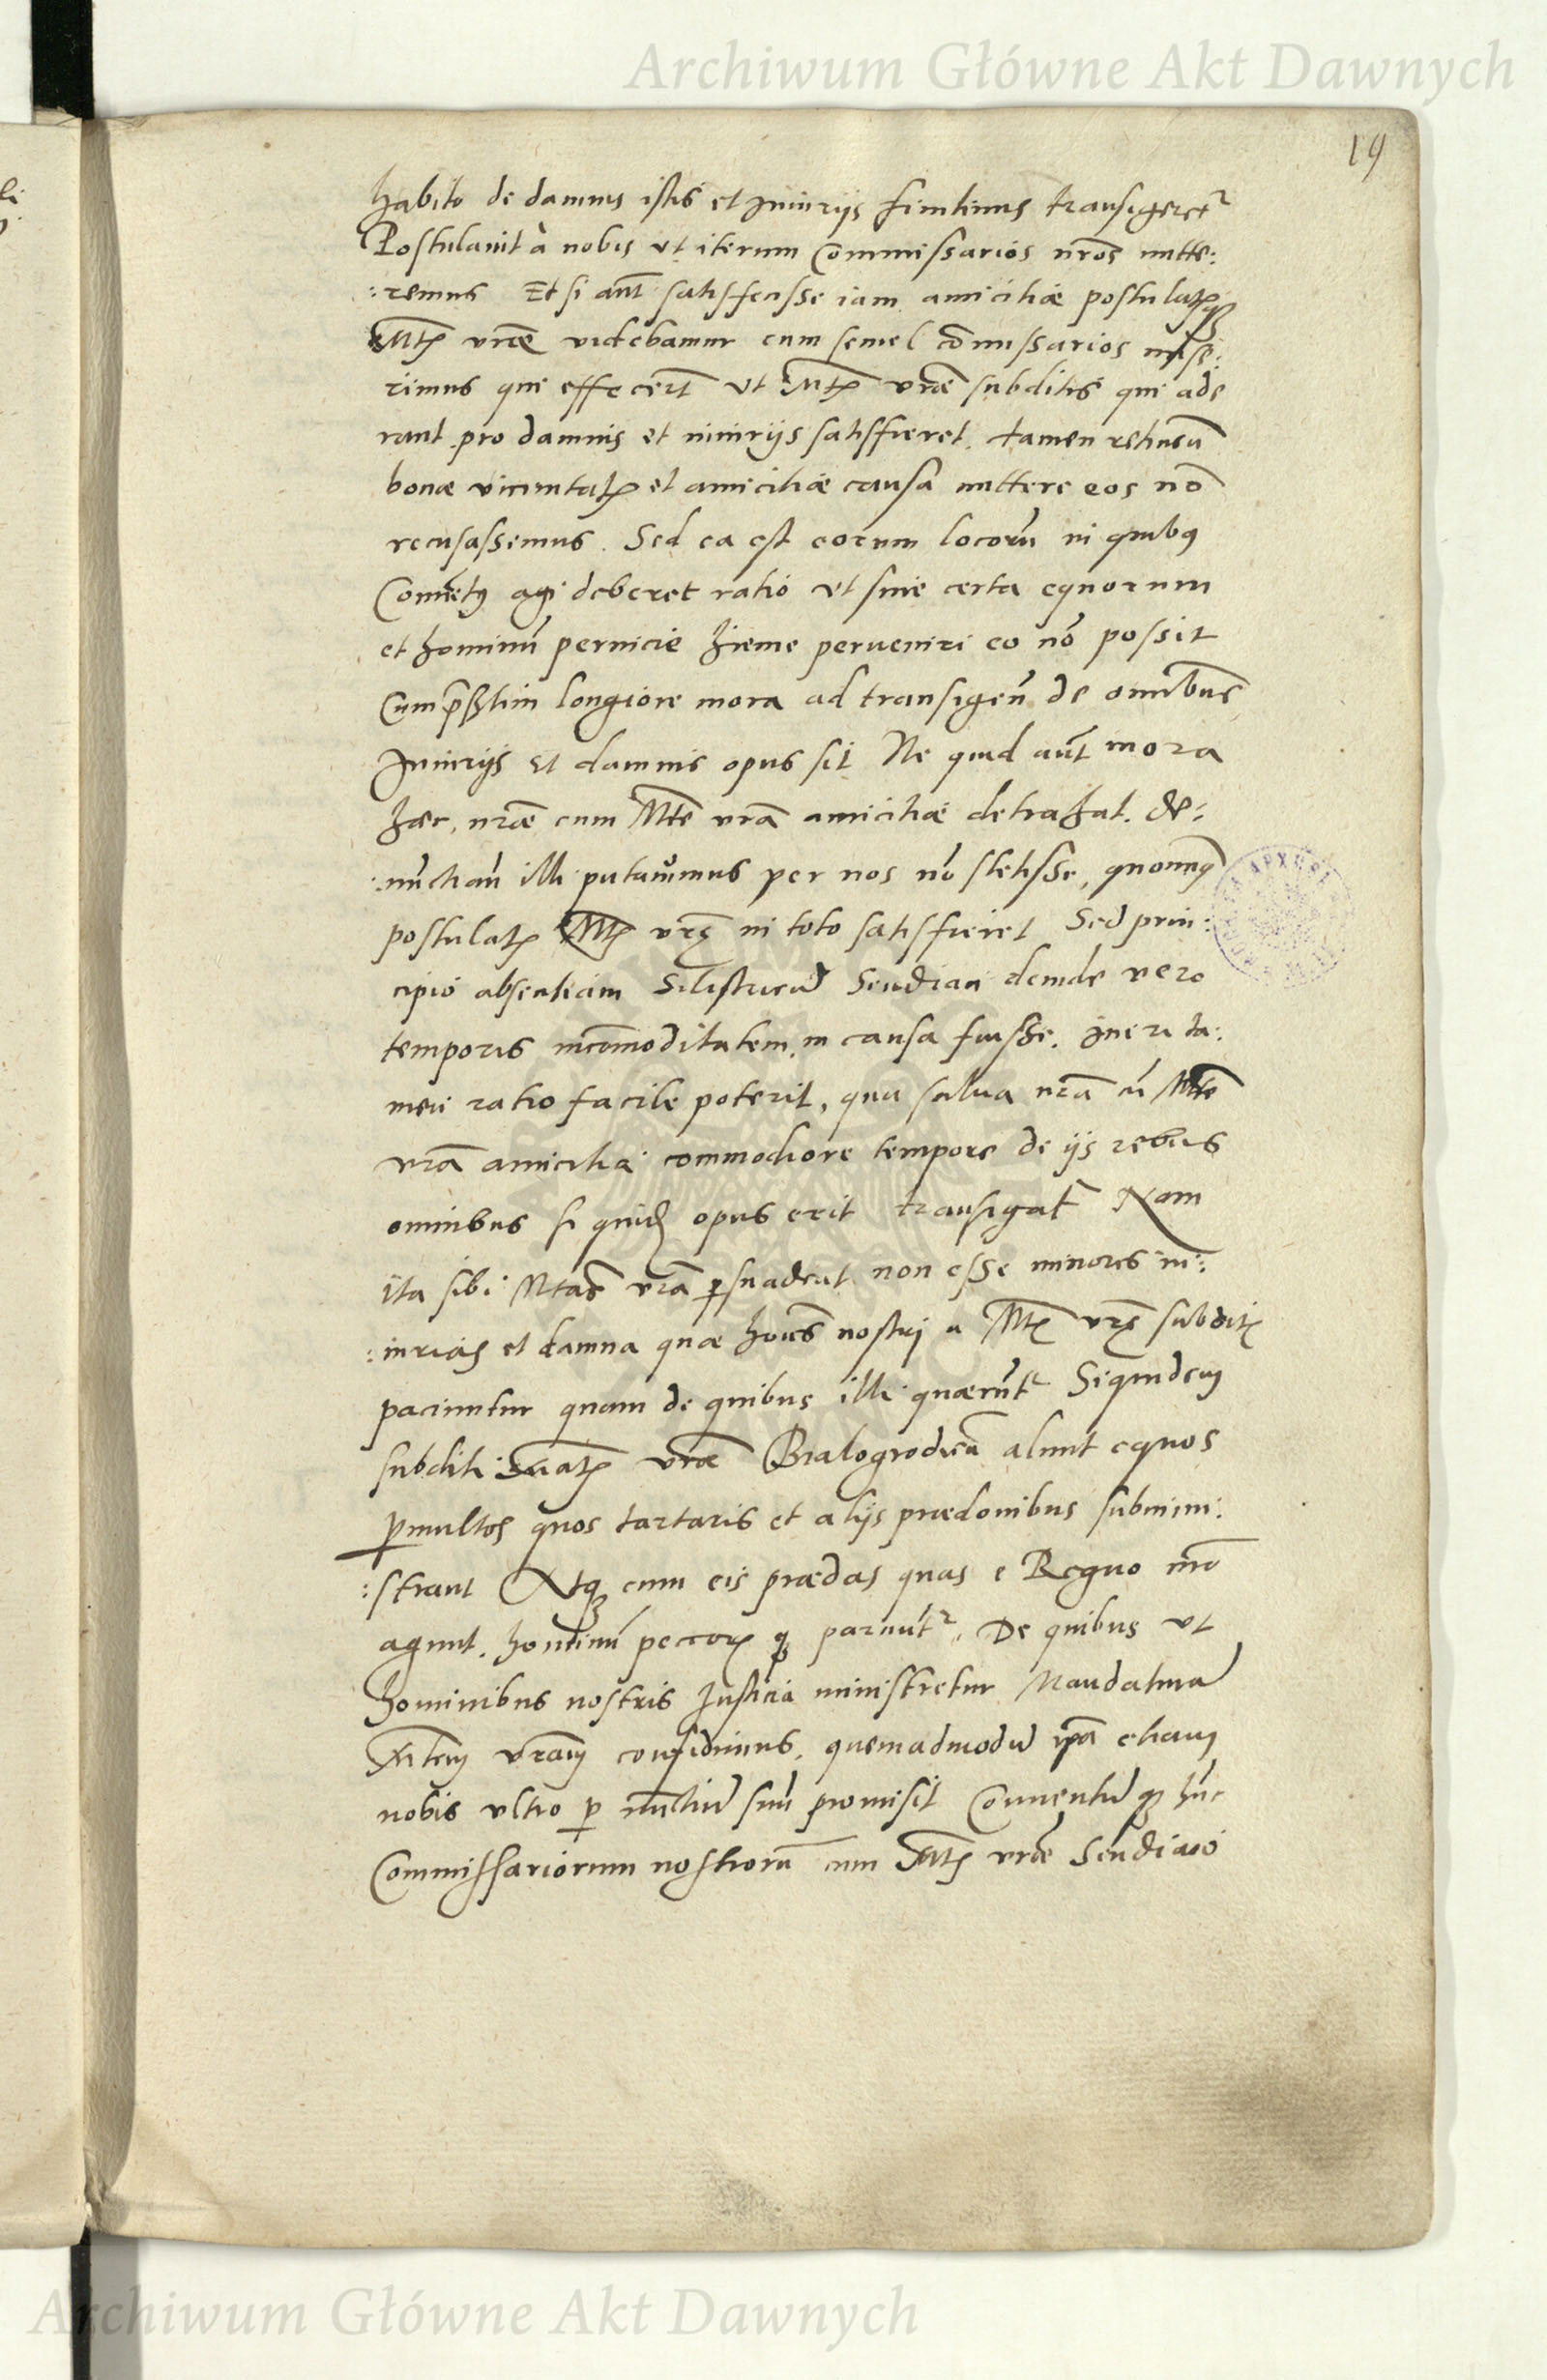 Archiwum Główne Akt Dawnych
19
habito de damnis istis et Iniurijs finitimis transigeret̃
Postulauit à nobis ut iterum Commissarios nros̃ mitte:
:remus Et si aut̃ satisfecisse iam amicitiæ postulatisq3
Mtis vræ̃ videbamur cum semel cõmissarios misse:
rimus qui effecer̃t ut Mtis vræ̃ subditis qui ade
rant pro damnis et iniurijs satisfieret. tamen retinendæ
bonæ vicinitatis et amicitiæ causa mittere eos nõ
recusassemus. Sed ea est eorum locorũ in quibus
Conuentus agi deberet ratio ut sine certa equorum
et hominũ pernicie hieme perueniri eo nõ possit
Cum p̃sertim longiore mora ad transigeñ de omnibus
Iniurijs et damnis opus sit Ne quid aut̃ mora
hæc, nræ̃ cum Mte vrã amicitiæ detrahat. de:
:nũctiañ illi putauimus per nos nõ stetisse, quominq3
postulatis Mtis vræ in toto satisfieret Sed prin:
cipio absentiam Silistricũ Sendiaci deinde vero
temporis incõmoditatem in causa fuisse. Iniri ta:
men ratio facile poterit, qua salua nrã cũ Mte
vrã amicitia commodiore tempore de ijs rebus
omnibus si quid opus erit transigat̃ Nam
ita sibi Mtas vrã p̱suadeat non esse minores in:
:iurias et damna quæ hoies̃ nostri a Mtis vræ subditis
paciuntur quam de quibus illi quærunt̃ Siquidem
subditi Mtis vræ̃ Bialogrodieñ alunt equos
p̱multos quos tartaris et alijs prædonibus submini:
:strant Atq3 cum eis prædas quas e Regno nrõ
agunt. hominũ pecorisq3 parciunt̃. De quibus ut
hominibus nostris Iusticia ministretur Mandaturã
Mtem vram̃ confidimus, quemadmodũ ip̃a etiam
nobis vltro p̱ nũctiũ suũ promisit Conuentũq3 hũc
Commissariorum nostrorũ cum Mtis vræ̃ Sendiaco
Archiwum Główne Akt Dawnych